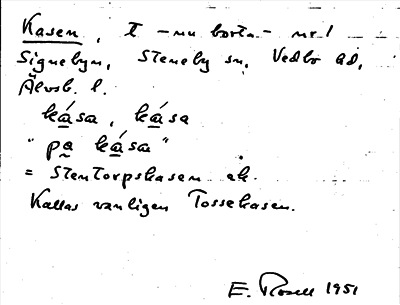 Kasen, t – nu borta – nr 1
Signebyn, Steneby sn, Vedbo hd,
Älvsb. l.
ká̱sa, ká̱sa
"på ká̱sa"
= Stentorpskasen ek.
Kallas vanligen Tossekasen.
E. Rosell 1951